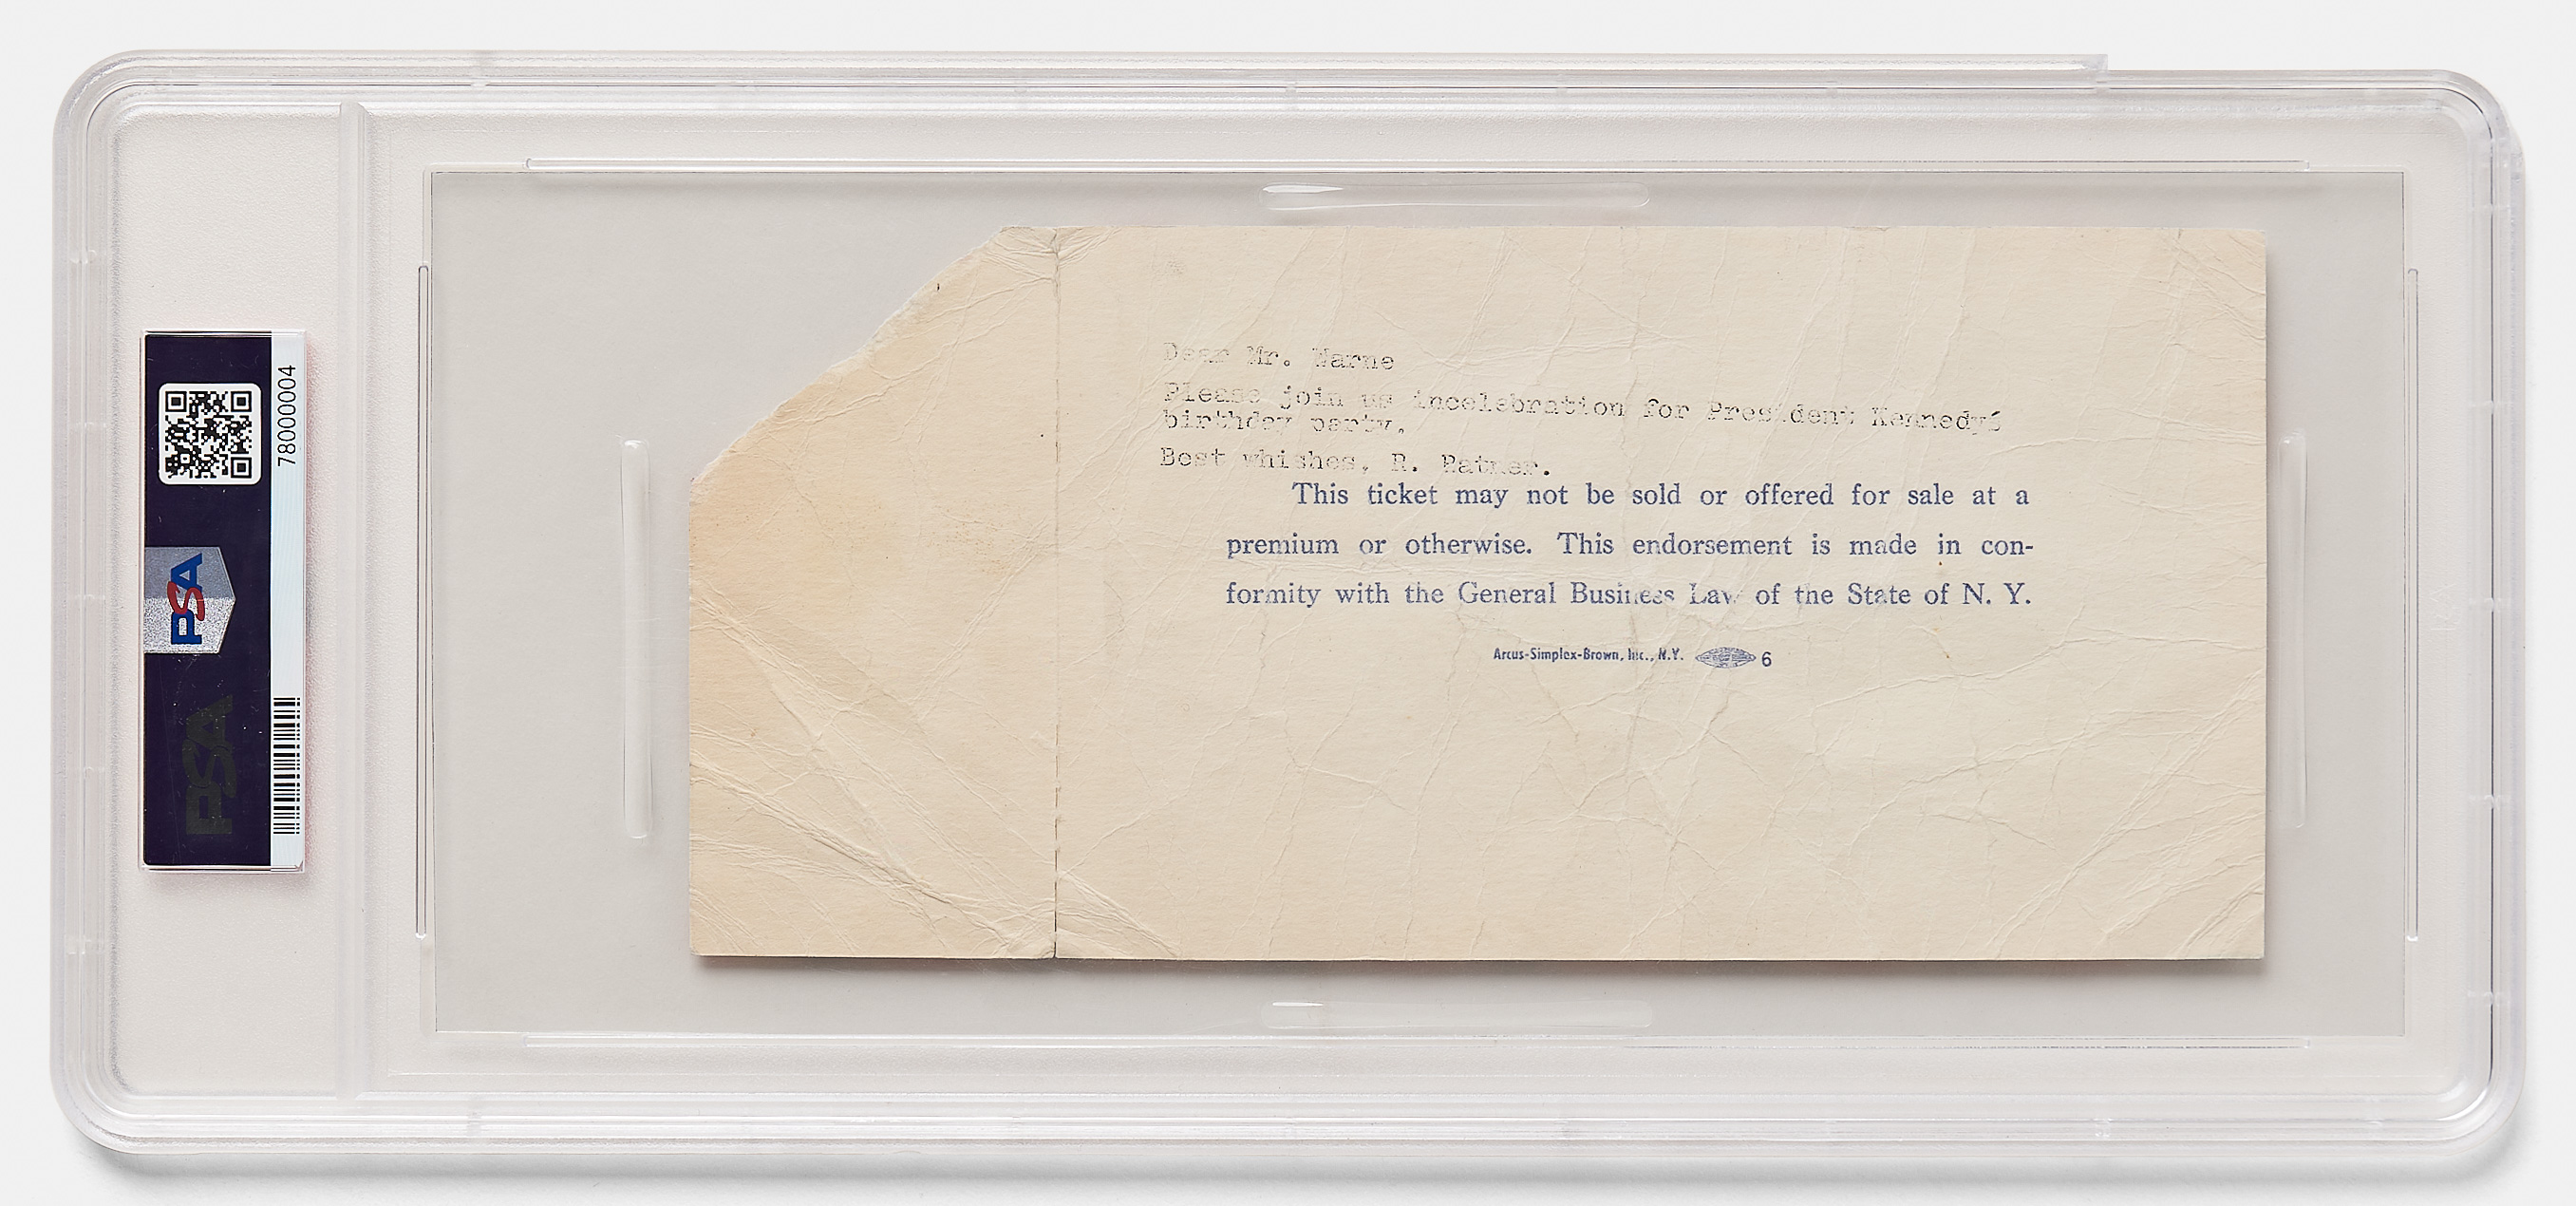 Dear Mr. Warne
Please join us incelebration for President Kennedys
birthday party.
Best whishes, R. Ratner.
This ticket may not be sold or offered for sale at a
premium or otherwise. This endorsement is made in con-
formity with the General Business Law of the State of N. Y.
Arcus-Simplex-Brown, Inc., N.Y. 6
78000004
PSA
PSA